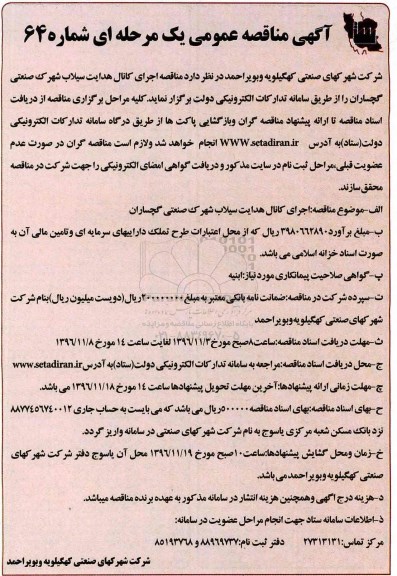 آگهی مناقصه عمومی یک مرحله ای شماره ۶۴
شرکت شهرکهای صنعتی کهگیلویه وبویراحمد در نظر دارد مناقصه اجرای کانال هدایت سیلاب شهرک صنعتی
گچساران را از طریق سامانه تدارکات الکترونیکی دولت برگزار نماید.کلیه مراحل برگزاری مناقصه از دریافت
اسناد مناقصه تا ارائه پیشنهاد مناقصه گران وبازگشایی پاکت ها از طریق درگاه سامانه تدارکات الکترونیکی
دولت(ستاد)به آدرس WWW.setadiran.ir انجام خواهد شد ولازم است مناقصه گران در صورت عدم
عضویت قبلی،مراحل ثبت نام در سایت مذکور و دریافت گواهی امضای الکترونیکی را جهت شرکت در مناقصه
محقق سازند.
الف-موضوع مناقصه:اجرای کانال هدایت سیلاب شهرک صنعتی گچساران
ب-مبلغ برآورد۳۹۸۰۶۶۲۸۹۰ ریال که از محل اعتبارات طرح تملک داراییهای سرمایه ای وتامین مالی آن به
صورت اسناد خزانه اسلامی می باشد.
پ-گواهی صلاحیت پیمانکاری مورد نیاز:ابنیه
ت-سپرده شرکت در مناقصه:ضمانت نامه بانکی معتبر به مبلغ ۲۰۰۰۰۰۰۰۰ریال(دویست میلیون ریال)بنام شرکت
شهرکهای صنعتی کهگیلویه وبویراحمد
ث-مهلت دریافت اسناد مناقصه:ساعت۸صبح مورخ ۱۳۹۶/۱۱/۳ لغایت ساعت ۱۴ مورخ ۱۳۹۶/۱۱/۸
ج-محل دریافت اسناد مناقصه:مراجعه به سامانه تدارکات الکترونیکی دولت(ستاد)به آدرس www.setadiran.ir
چ-مهلت زمانی ارائه پیشنهادها:آخرین مهلت تحویل پیشنهادها ساعت ۱۴ مورخ ۱۳۹۶/۱۱/۱۸ می باشد.
ح-بهای اسناد مناقصه:بهای اسناد مناقصه ۵۰۰۰۰۰ریال می باشد که می بایست به حساب جاری ۸۸۷۷۴۵۶۷۴۰۰۱۲
نزد بانک مسکن شعبه مرکزی یاسوج به نام شرکت شهرکهای صنعتی در سامانه واریز گردد.
خ-زمان ومحل گشایش پیشنهادها:ساعت۱۰صبح مورخ ۱۳۹۶/۱۱/۱۹ محل آن یاسوج دفتر شرکت شهرکهای
صنعتی کهگیلویه وبویراحمدمی باشد.
د-هزینه درج آگهی وهمچنین هزینه انتشار در سامانه مذکور به عهده برنده مناقصه میباشد.
ذ-اطلاعات سامانه ستاد جهت انجام مراحل عضویت در سامانه:
مرکز تماس:۲۷۳۱۳۱۳۱ دفتر ثبت نام:۸۸۹۶۹۷۳۷ و ۸۵۱۹۳۷۶۸
شرکت شهرکهای صنعتی کهگیلویه وبویراحمد